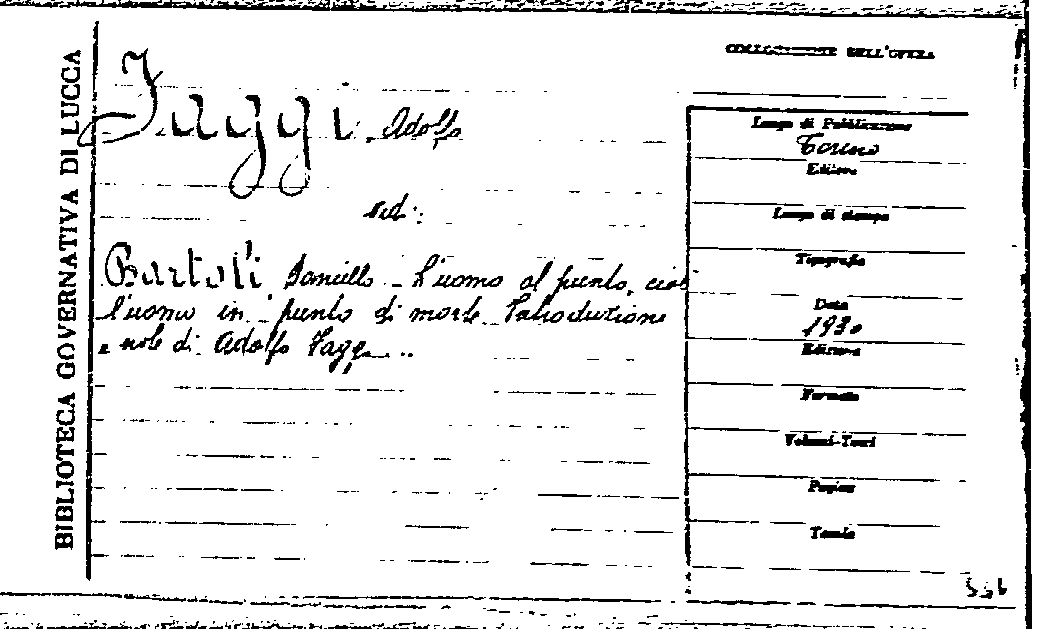 BIBLIOTECA GOVERNATIVA DI LUCCA
COLLOCAZIONE DELL'OPERA
Faggi, Adolfo
vedi:
Bartoli Daniello - L'uomo al punto, cioè
l'uomo in punto di morte. Introduzione
e note di Adolfo Faggi
Luogo di Pubblicazione
Torino
Editore
Luogo di stampa
Tipografia
Data
1930
Edizione
Formato
Volumi-Tomi
Pagine
Tavole